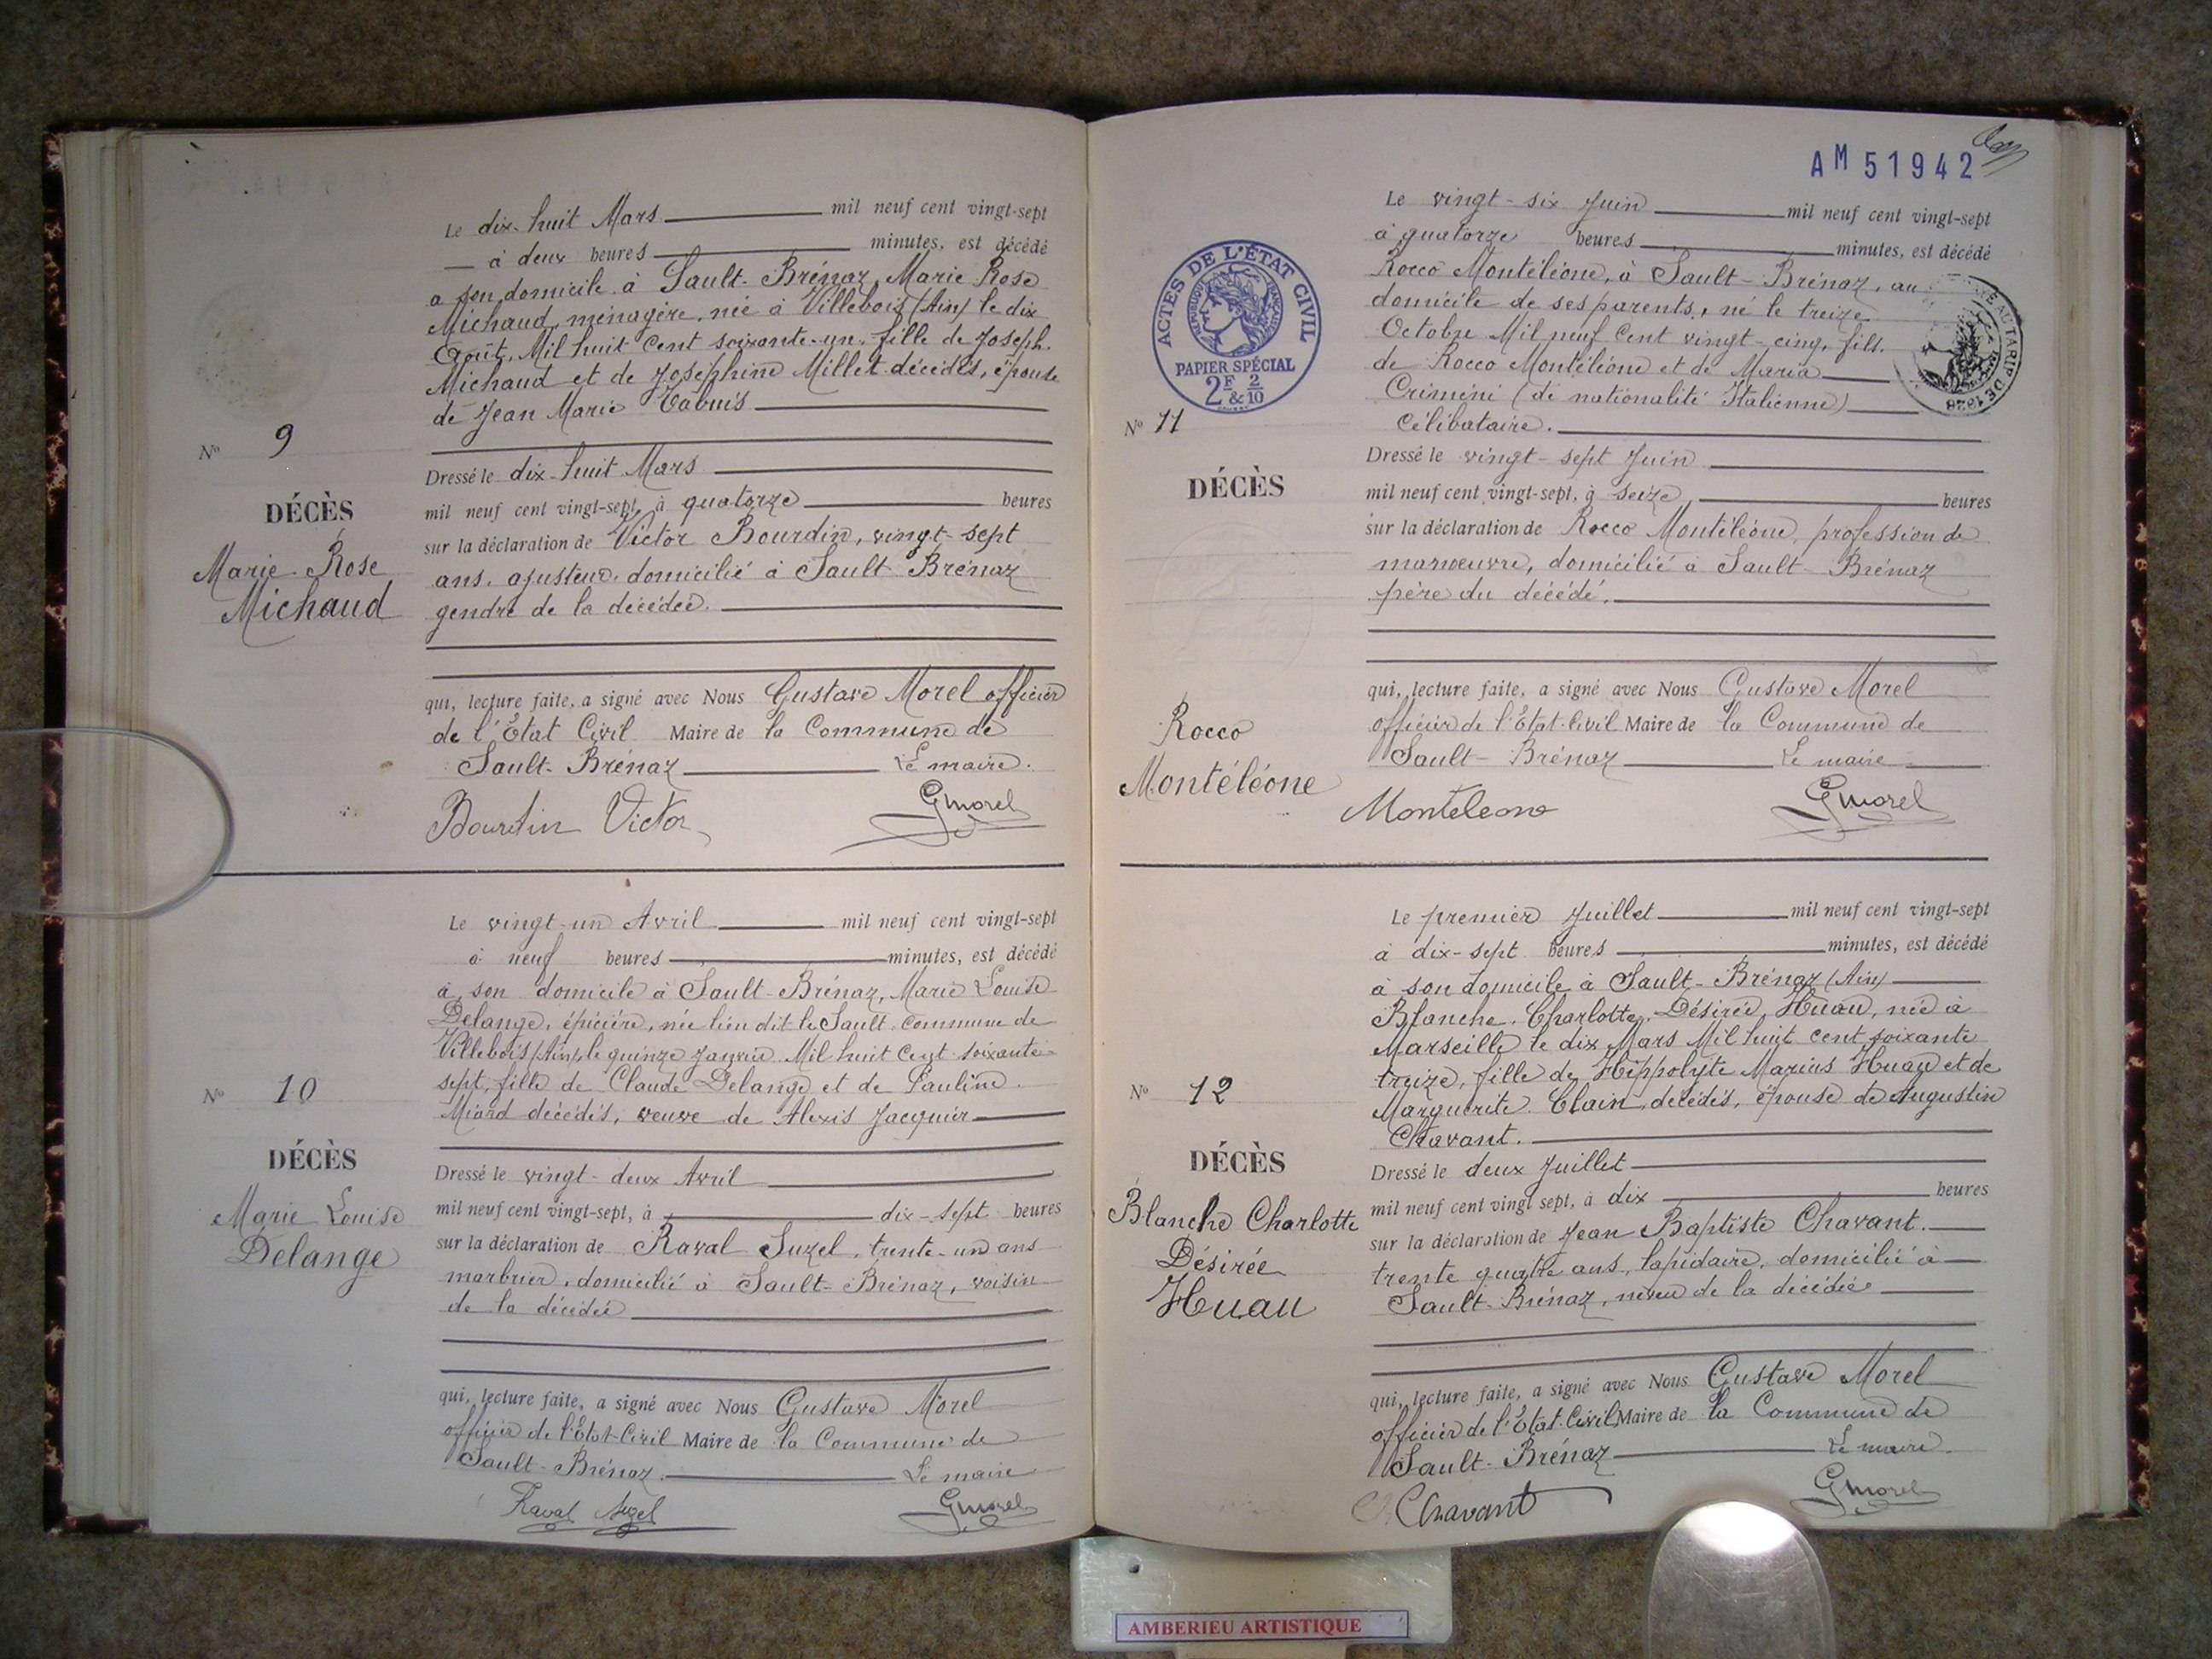 Le dix-huit Mars mil neuf cent vingt-sept
à deux heures minutes, est décédé
a son domicile à Sault-Brénaz, Marie Rose
Michaud, ménagère, née à Villebois (Ain) le dix
Août, Mil huit Cent soixante-un, fille de Joseph
Michaud et de Joséphine Millet décédés, épouse
de Jean Marie Vabuis
No 9
DÉCÈS
Marie-Rose
Michaud
Dressé le dix-huit Mars
mil neuf cent vingt-sept, à quatorze heures
sur la déclaration de Victor Bourdin, vingt-sept
ans, ajusteur, domicilié à Sault-Brénaz
gendre de la décédée.
qui, lecture faite, a signé avec Nous Gustave Morel officier
de l'État Civil Maire de la Commune de
Sault-Brénaz Le maire.
Bourdin Victor GMorel
Le vingt-un Avril mil neuf cent vingt-sept
à neuf heures minutes, est décédé
à son domicile à Sault-Brénaz, Marie Louise
Delange, épicière, née lieu dit le Sault commune de
Villebois (Ain), le quinze Janvier Mil huit Cent soixante
sept, fille de Claude Delange et de Pauline
Miard décédés, veuve de Alexis Jacquier
No 10
DÉCÈS
Marie Louise
Delange
Dressé le vingt-deux Avril
mil neuf cent vingt-sept, à dix-sept heures
sur la déclaration de Raval Suzel, trente-un ans
marbrier, domicilié à Sault-Brénaz, voisin
de la décédée
qui, lecture faite, a signé avec Nous Gustave Morel
officier de l'État-Civil Maire de la Commune de
Sault-Brénaz. Le maire
Raval Suzel GMorel
AM 51942
ACTES DE L'ÉTAT CIVIL
RÉPUBLIQUE FRANÇAISE
PAPIER SPÉCIAL
2F & 2/10
Le vingt-six Juin mil neuf cent vingt-sept
à quatorze heures minutes, est décédé
Rocco Montéléone, à Sault-Brénaz, au
domicile de ses parents, né le treize
Octobre Mil neuf Cent vingt-cinq, fils
de Rocco Montéléone et de Maria
Crimini (de nationalité Italienne)
Célibataire.
No 11
DÉCÈS
Rocco
Montéléone
Dressé le vingt-sept Juin
mil neuf cent vingt-sept, à seize heures
sur la déclaration de Rocco Montéléone, profession de
manoeuvre, domicilié à Sault-Brénaz
père du décédé.
qui, lecture faite, a signé avec Nous Gustave Morel
officier de l'État-Civil Maire de la Commune de
Sault-Brénaz Le maire
Monteleone GMorel
Le premier Juillet mil neuf cent vingt-sept
à dix-sept heures minutes, est décédé
à son domicile à Sault-Brénaz (Ain)
Blanche, Charlotte, Désirée, Huau, née à
Marseille le dix Mars Mil huit cent soixante
treize, fille de Hippolyte Marius Huau et de
Marguerite Clain, décédés, épouse de Augustin
Chavant.
No 12
DÉCÈS
Blanche Charlotte
Désirée
Huau
Dressé le deux Juillet
mil neuf cent vingt sept, à dix heures
sur la déclaration de Jean Baptiste Chavant.
trente quatre ans, lapidaire, domicilié à
Sault-Brénaz, neveu de la décédée
qui, lecture faite, a signé avec Nous Gustave Morel
officier de l'État-Civil Maire de la Commune de
Sault-Brénaz Le maire.
Chavant GMorel
AMBERIEU ARTISTIQUE